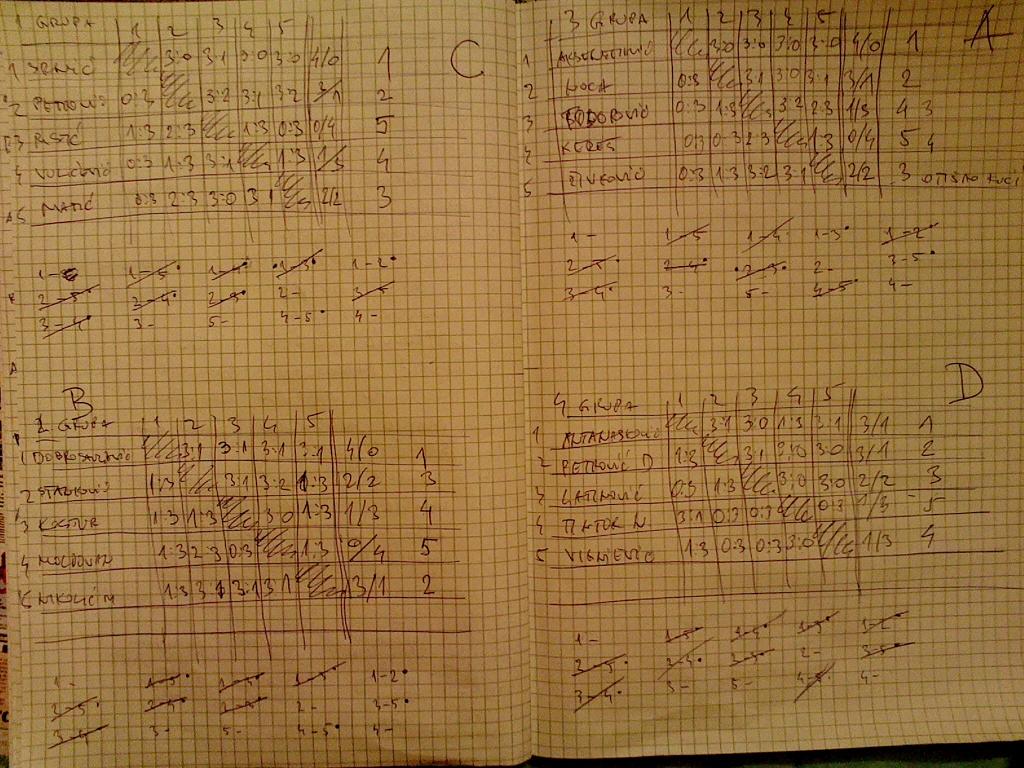 1 GRUPA 1 2 3 4 5 C
1 3:0 3:1 3:0 3:0 4/0 1
2 PETROVIĆ 0:3 3:2 3:1 3:2 3/1 2
3 RISTIĆ 1:3 2:3 1:3 0:3 0/4 5
4 0:3 1:3 3:1 1:3 1/3 4
5 MATIĆ 0:3 2:3 3:0 3:1 2/2 3
1- 1-5 1-4 1-3 1-2
2-5 3-4 2-3 2- 3-5
3-4 3- 5- 4-5 4-
3 GRUPA 1 2 3 4 5 A
1 3:0 3:0 3:0 3:0 4/0 1
2 HOCA 0:3 3:1 3:0 3:1 3/1 2
3 TODOROVIĆ 0:3 1:3 3:2 2:3 1/3 4 3
4 KEREŠ 0:3 0:3 2:3 1:3 0/4 5 4
5 ŽIVKOVIĆ 0:3 1:3 3:2 3:1 2/2 3 OTIŠAO KUĆI
1- 1-5 1-4 1-3 1-2
2-5 2-4 2-3 2- 3-5
3-4 3- 5- 4-5 4-
B
2 GRUPA 1 2 3 4 5
1 DOBROSAVLJEVIĆ 3:1 3:1 3:1 3:1 4/0 1
2 STANKOVIĆ 1:3 3:1 3:2 1:3 2/2 3
3 1:3 1:3 3:0 1:3 1/3 4
4 MOLDOVAN 1:3 2:3 0:3 1:3 0/4 5
5 NIKOLIĆ M 1:3 3:1 3:1 3:1 3/1 2
1- 1-5 1-4 1-3 1-2
2-5 2- 3-5
3-4 3- 5- 4-5 4-
D
4 GRUPA 1 2 3 4 5
1 ANTANASKOVIĆ 3:1 3:0 1:3 3:1 3/1 1
2 PETROVIĆ D 1:3 3:1 3:0 3:0 3/1 2
3 0:3 1:3 3:0 3:0 2/2 3
4 3:1 0:3 0:3 0:3 1/3 5
5 1:3 0:3 0:3 3:0 1/3 4
1- 1-5 1-4 1-3 1-2
2-5 2- 3-5
3-4 3- 5- 4-5 4-